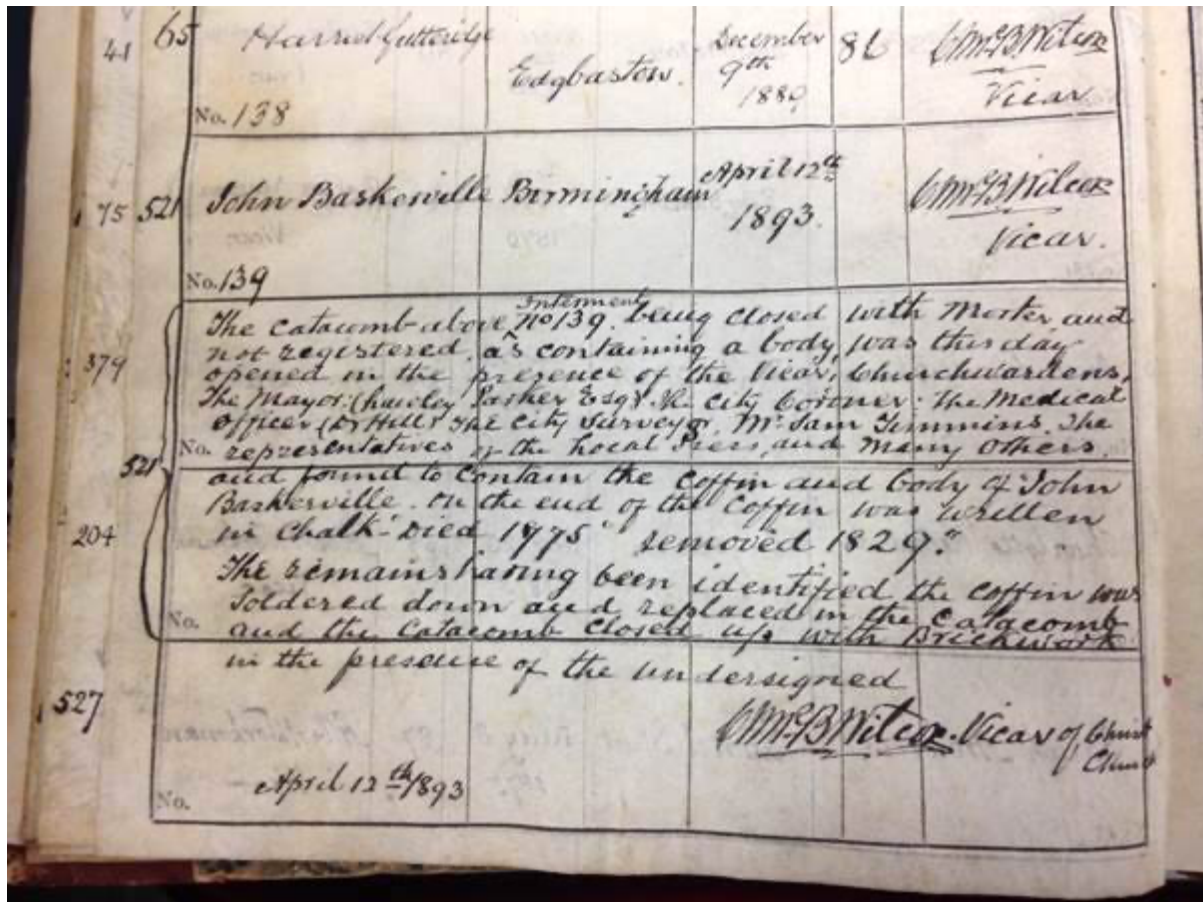 41 65 Harriet Gutteridge Edgbaston. December 9th 1880 86 Vicar
No. 138
75 521 John Baskerville Birmingham April 12th 1893. Vicar.
No. 139
The Catacomb above Interment No 139. being closed with Mortar and
379 not registered, as containing a body, was this day
opened in the presence of the Vicar, Churchwardens,
The Mayor (Lawley Parker Esqr. The City Coroner. The Medical
Officer (Dr Hill) The City Surveyor, Mr. Sam Timmins. The
No. representatives of the Local Press, and Many others,
521 and found to Contain the Coffin and body of John
Baskerville. On the end of the Coffin was written
204 in Chalk "Died 1775" removed 1829."
The remains having been identified the Coffin was
Soldered down and replaced in the Catacomb
No. and the Catacomb Closed up with Brickwork
in the presence of the undersigned
527 Wilcox. Vicar of Christ Church
April 12th 1893
No.